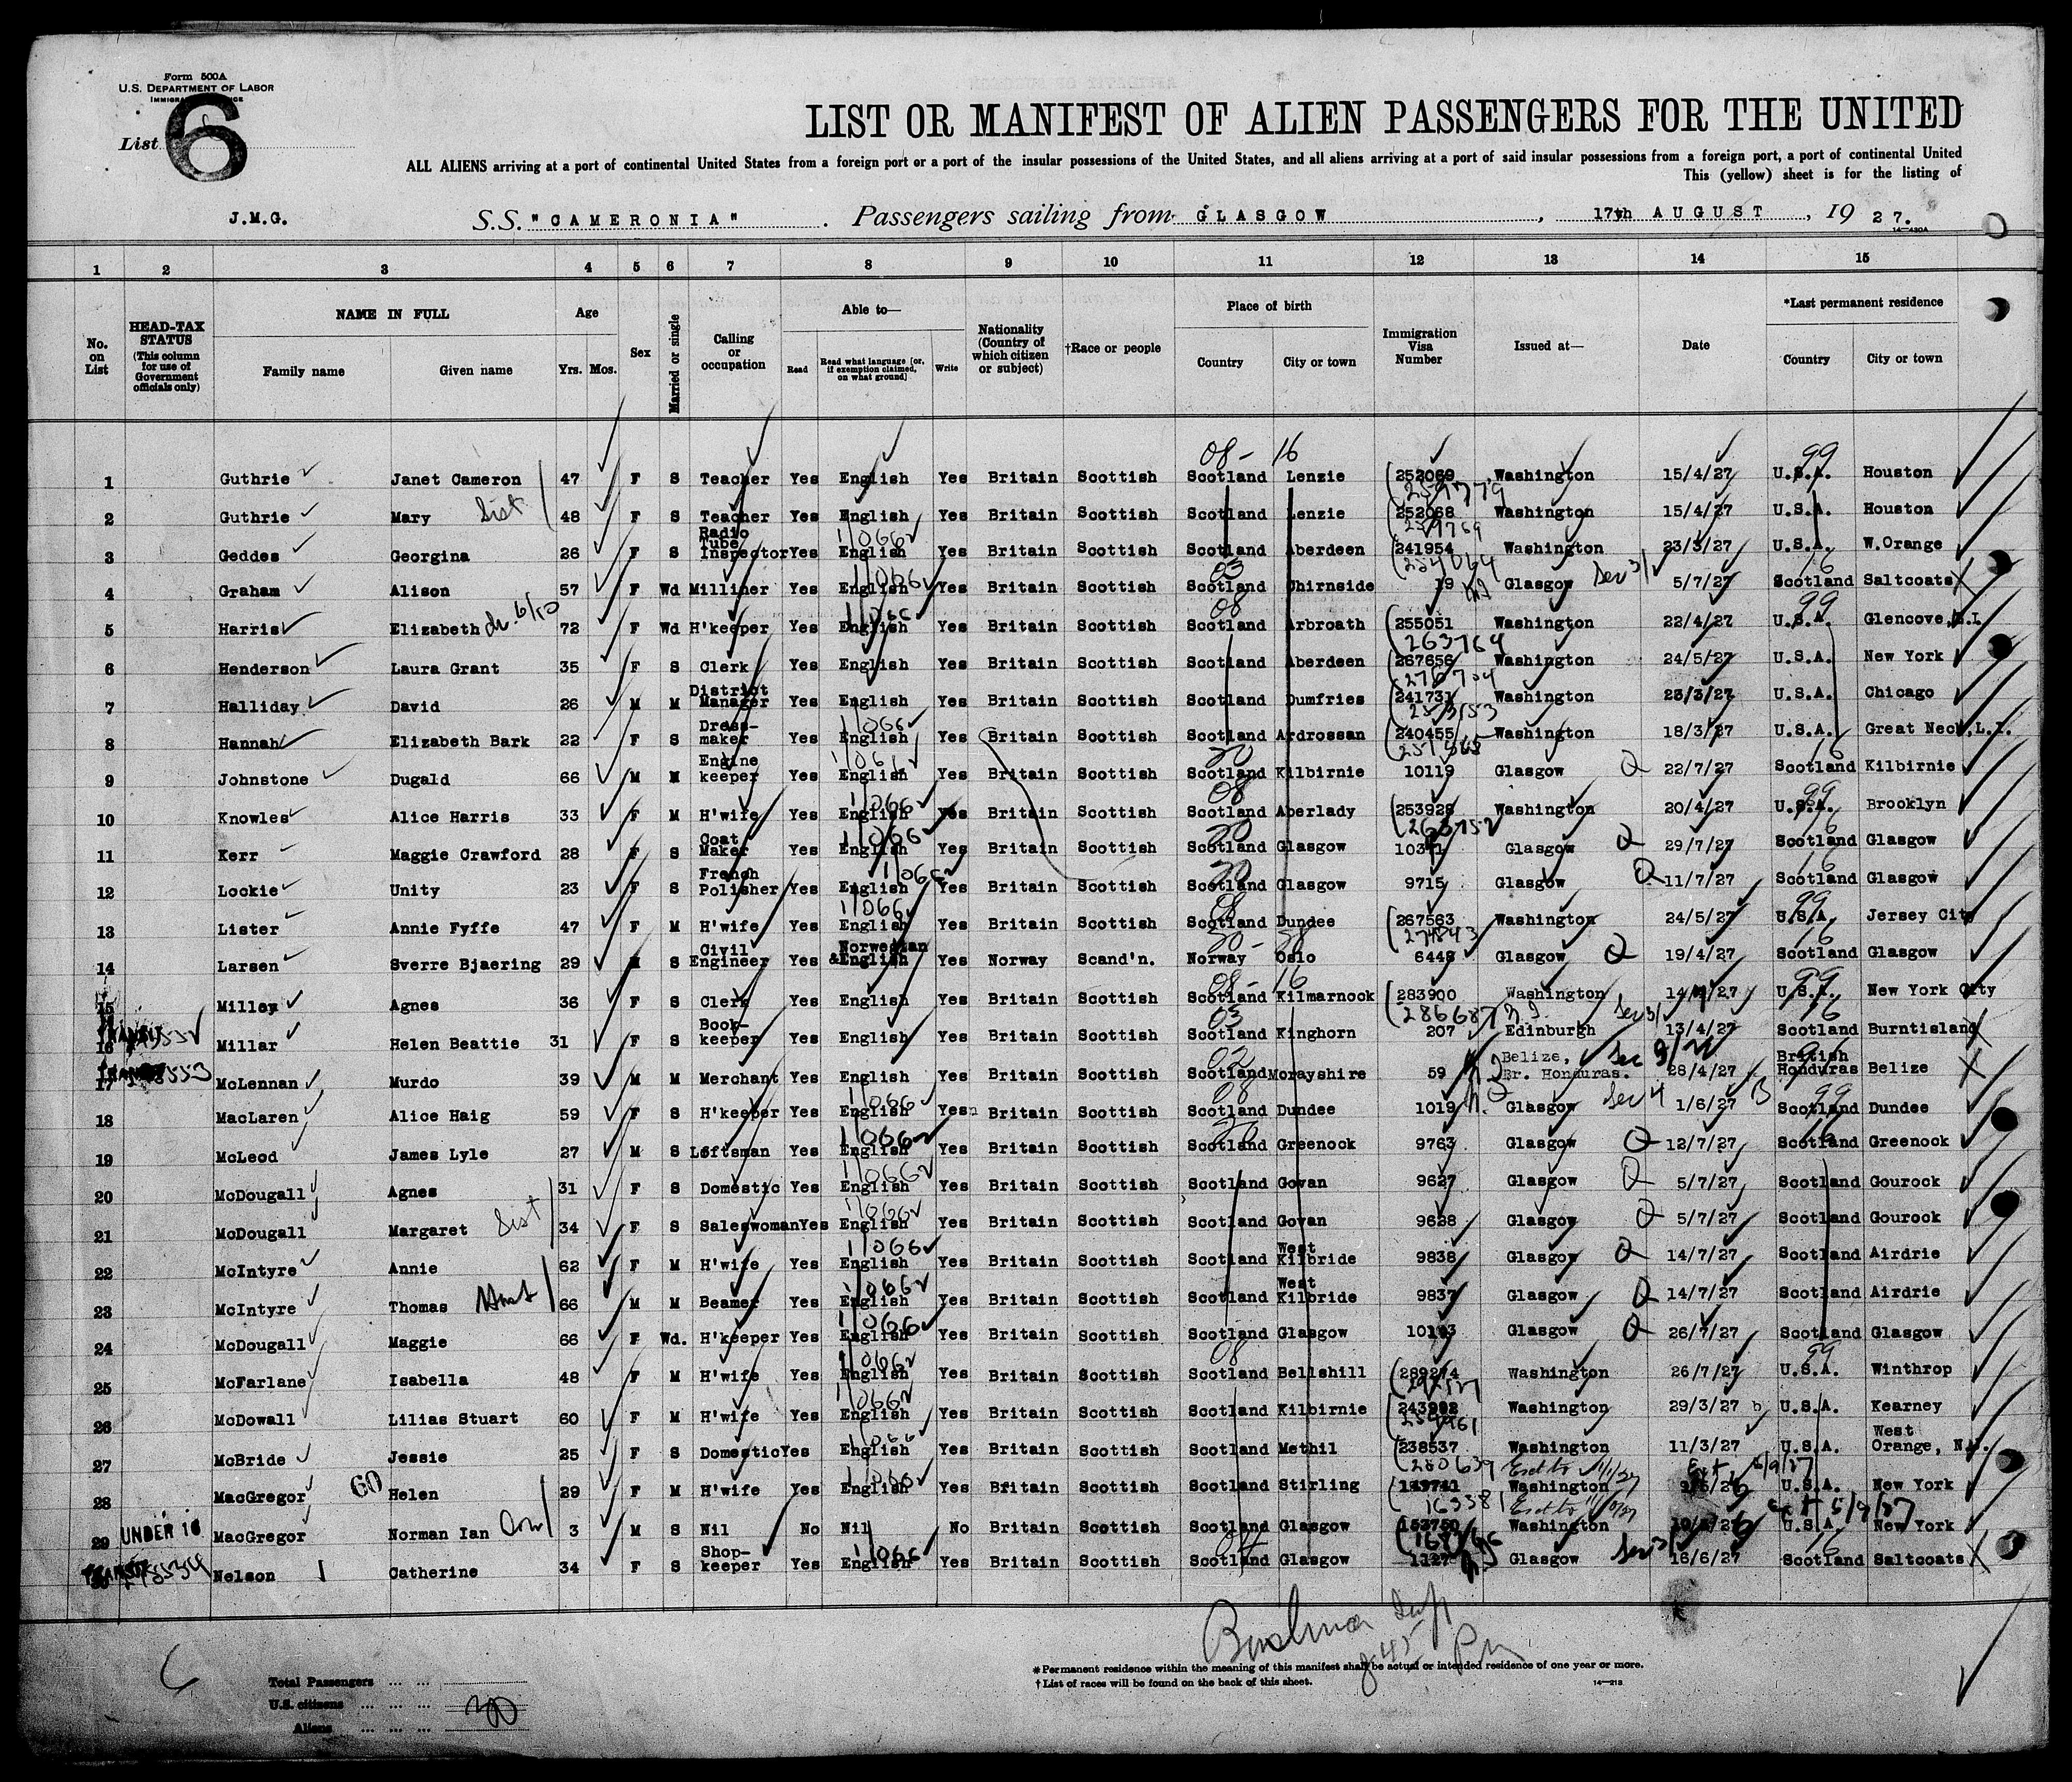 Form 500A
U.S. DEPARTMENT OF LABOR
List 6
LIST OR MANIFEST OF ALIEN PASSENGERS FOR THE UNITED
ALL ALIENS arriving at a port of continental United States from a foreign port or a port of the insular possessions of the United States, and all aliens arriving at a port of said insular possessions from a foreign port, a port of continental United
This (yellow) sheet is for the listing of
J.M.G. S.S. "CAMERONIA". Passengers sailing from GLASGOW, 17th AUGUST, 19 27.
14—430A
1 2 3 4 5 6 7 8 9 10 11 12 13 14 15
No. on List
HEAD-TAX STATUS (This column for use of Government officials only)
NAME IN FULL
Family name Given name
Age
Yrs. Mos.
Sex
Married or single
Calling or occupation
Able to—
Read Read what language [or, if exemption claimed, on what ground] Write
Nationality (Country of which citizen or subject)
†Race or people
Place of birth
Country City or town
Immigration Visa Number
Issued at—
Date
*Last permanent residence
Country City or town
08- 16 99
1 Guthrie Janet Cameron 47 F S Teacher Yes English Yes Britain Scottish Scotland Lenzie 252069 Washington 15/4/27 U.S.A. Houston
2 Guthrie Mary Sist 48 F S Teacher Yes English Yes Britain Scottish Scotland Lenzie 252068 Washington 15/4/27 U.S.A. Houston
3 Geddes Georgina 26 F S Radio Tube Inspector Yes English Yes Britain Scottish Scotland Aberdeen 241954 Washington 23/3/27 U.S.A. W.Orange
4 Graham Alison 57 F Wd Milliner Yes English Yes Britain Scottish Scotland Chirnside 19 Glasgow Sec 3/ 5/7/27 Scotland Saltcoats
5 Harris Elizabeth 72 F Wd H'keeper Yes English Yes Britain Scottish Scotland Arbroath 255051 Washington 22/4/27 U.S.A. Glencove, L.I.
263764
6 Henderson Laura Grant 35 F S Clerk Yes English Yes Britain Scottish Scotland Aberdeen 267656 Washington 24/5/27 U.S.A. New York
7 Halliday David 26 M M District Manager Yes English Yes Britain Scottish Scotland Dumfries 241731 Washington 23/3/27 U.S.A. Chicago
8 Hannah Elizabeth Bark 22 F S Dress-maker Yes English Yes Britain Scottish Scotland Ardrossan 240455 Washington 18/3/27 U.S.A. Great Neck, L.I.
9 Johnstone Dugald 66 M M Engine keeper Yes English Yes Britain Scottish Scotland Kilbirnie 10119 Glasgow Q 22/7/27 Scotland Kilbirnie
10 Knowles Alice Harris 33 F M H'wife Yes English Yes Britain Scottish Scotland Aberlady 253928 Washington 20/4/27 U.S.A. Brooklyn
11 Kerr Maggie Crawford 28 F S Coat Maker Yes English Yes Britain Scottish Scotland Glasgow Glasgow Q 29/7/27 Scotland Glasgow
12 Lockie Unity 23 F S French Polisher Yes English Yes Britain Scottish Scotland Glasgow 9715 Glasgow Q 11/7/27 Scotland Glasgow
13 Lister Annie Fyffe 47 F M H'wife Yes English Yes Britain Scottish Scotland Dundee 267563 Washington 24/5/27 U.S.A. Jersey City
14 Larsen Sverre Bjaering 29 M S Civil Engineer Yes Norwegian &English Yes Norway Scand'n. Norway Oslo 6448 Glasgow Q 19/4/27 Scotland Glasgow
15 Miller Agnes 36 F S Clerk Yes English Yes Britain Scottish Scotland Kilmarnock 283900 Washington U.S.A. New York City
286687
16 Millar Helen Beattie 31 F S Book-keeper Yes English Yes Britain Scottish Scotland Kinghorn 207 Edinburgh 13/4/27 Scotland Burntisland
17 McLennan Murdo 39 M M Merchant Yes English Yes Britain Scottish Scotland Morayshire 59 Belize, Br. Honduras. 28/4/27 British Honduras Belize
18 MacLaren Alice Haig 59 F S H'keeper Yes English Yes Britain Scottish Scotland Dundee 1019 Glasgow Sec 4 1/6/27 Scotland Dundee
19 McLeod James Lyle 27 M S Loftsman Yes English Yes Britain Scottish Scotland Greenock 9763 Glasgow Q 12/7/27 Scotland Greenock
20 McDougall Agnes 31 F S Domestic Yes English Yes Britain Scottish Scotland Govan 9627 Glasgow Q 5/7/27 Scotland Gourock
21 McDougall Margaret Sist 34 F S Saleswoman Yes English Yes Britain Scottish Scotland Govan 9628 Glasgow Q 5/7/27 Scotland Gourock
22 McIntyre Annie 62 F M H'wife Yes English Yes Britain Scottish Scotland West Kilbride 9838 Glasgow Q 14/7/27 Scotland Airdrie
23 McIntyre Thomas 66 M M Beamer Yes English Yes Britain Scottish Scotland West Kilbride 9837 Glasgow Q 14/7/27 Scotland Airdrie
24 McDougall Maggie 66 F Wd. H'keeper Yes English Yes Britain Scottish Scotland Glasgow Glasgow Q 26/7/27 Scotland Glasgow
25 McFarlane Isabella 48 F M H'wife Yes English Yes Britain Scottish Scotland Bellshill 289274 Washington 26/7/27 U.S.A. Winthrop
26 McDowall Lilias Stuart 60 F M H'wife Yes English Yes Britain Scottish Scotland Kilbirnie Washington 29/3/27 U.S.A. Kearney
27 McBride Jessie 25 F S Domestic Yes English Yes Britain Scottish Scotland Methil 238537 Washington 11/3/27 U.S.A. West Orange, N.J.
28 MacGregor 60 Helen 29 F M H'wife Yes English Yes Britain Scottish Scotland Stirling Washington U.S.A. New York
29 UNDER 16 MacGregor Norman Ian 3 M S Nil No Nil No Britain Scottish Scotland Glasgow Washington U.S.A. New York
30 Nelson Catherine 34 F S Shop-keeper Yes English Yes Britain Scottish Scotland Glasgow 1127 Glasgow 16/6/27 Scotland Saltcoats
*Permanent residence within the meaning of this manifest shall be actual or intended residence of one year or more.
†List of races will be found on the back of this sheet.
14—213
Total Passengers
U.S. citizens
Aliens 30